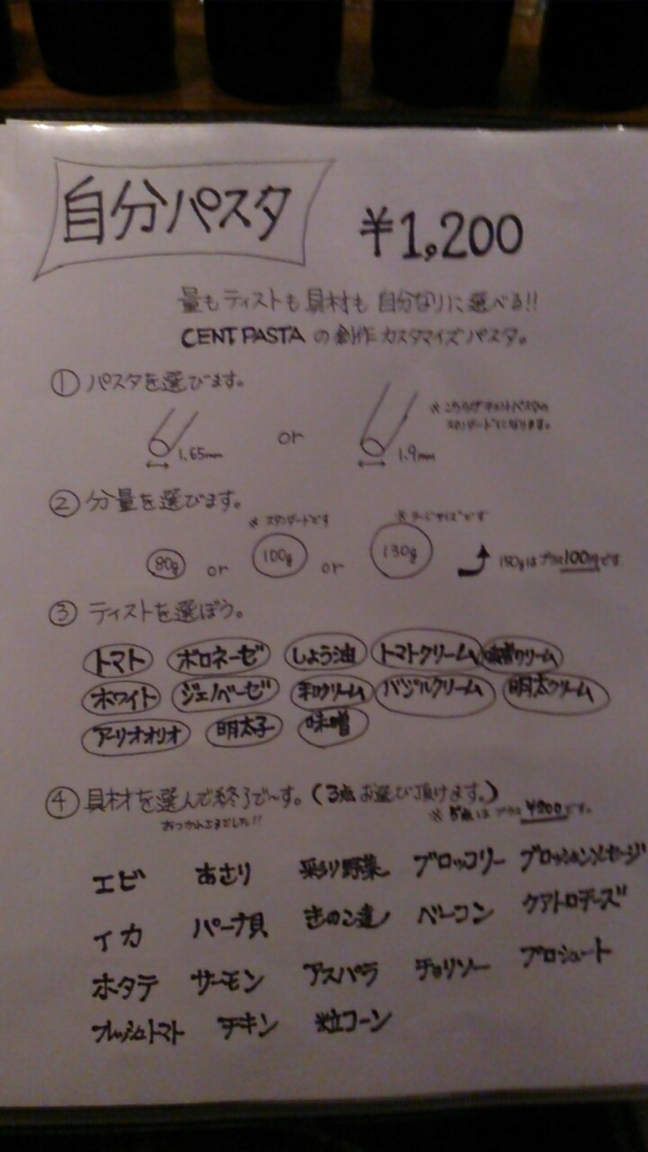 自分パスタ ¥1,200
量もテイストも具材も自分なりに選べる!!
CENT PASTA の創作カスタマイズパスタ。
① パスタを選びます。
1.65mm or 1.9mm
※こちらがサントパスタの
スタンダードになります。
② 分量を選びます。
※スタンダードです ※ラージサイズです
80g or 100g or 130g 130gはプラス100円です
③ テイストを選ぼう。
トマト ボロネーゼ しょう油 トマトクリーム 味噌クリーム
ホワイト ジェノベーゼ 和クリーム バジルクリーム 明太クリーム
アーリオオリオ 明太子 味噌
④ 具材を選んで終了で〜す。(3点お選び頂けます。)
おつかれさまでした!!
※5点はプラス¥200です。
エビ あさり 彩り野菜 ブロッコリー
イカ パーナ貝 きのこ達 ベーコン クアトロチーズ
ホタテ サーモン アスパラ チョリソー プロシュート
フレッシュトマト チキン 粒コーン